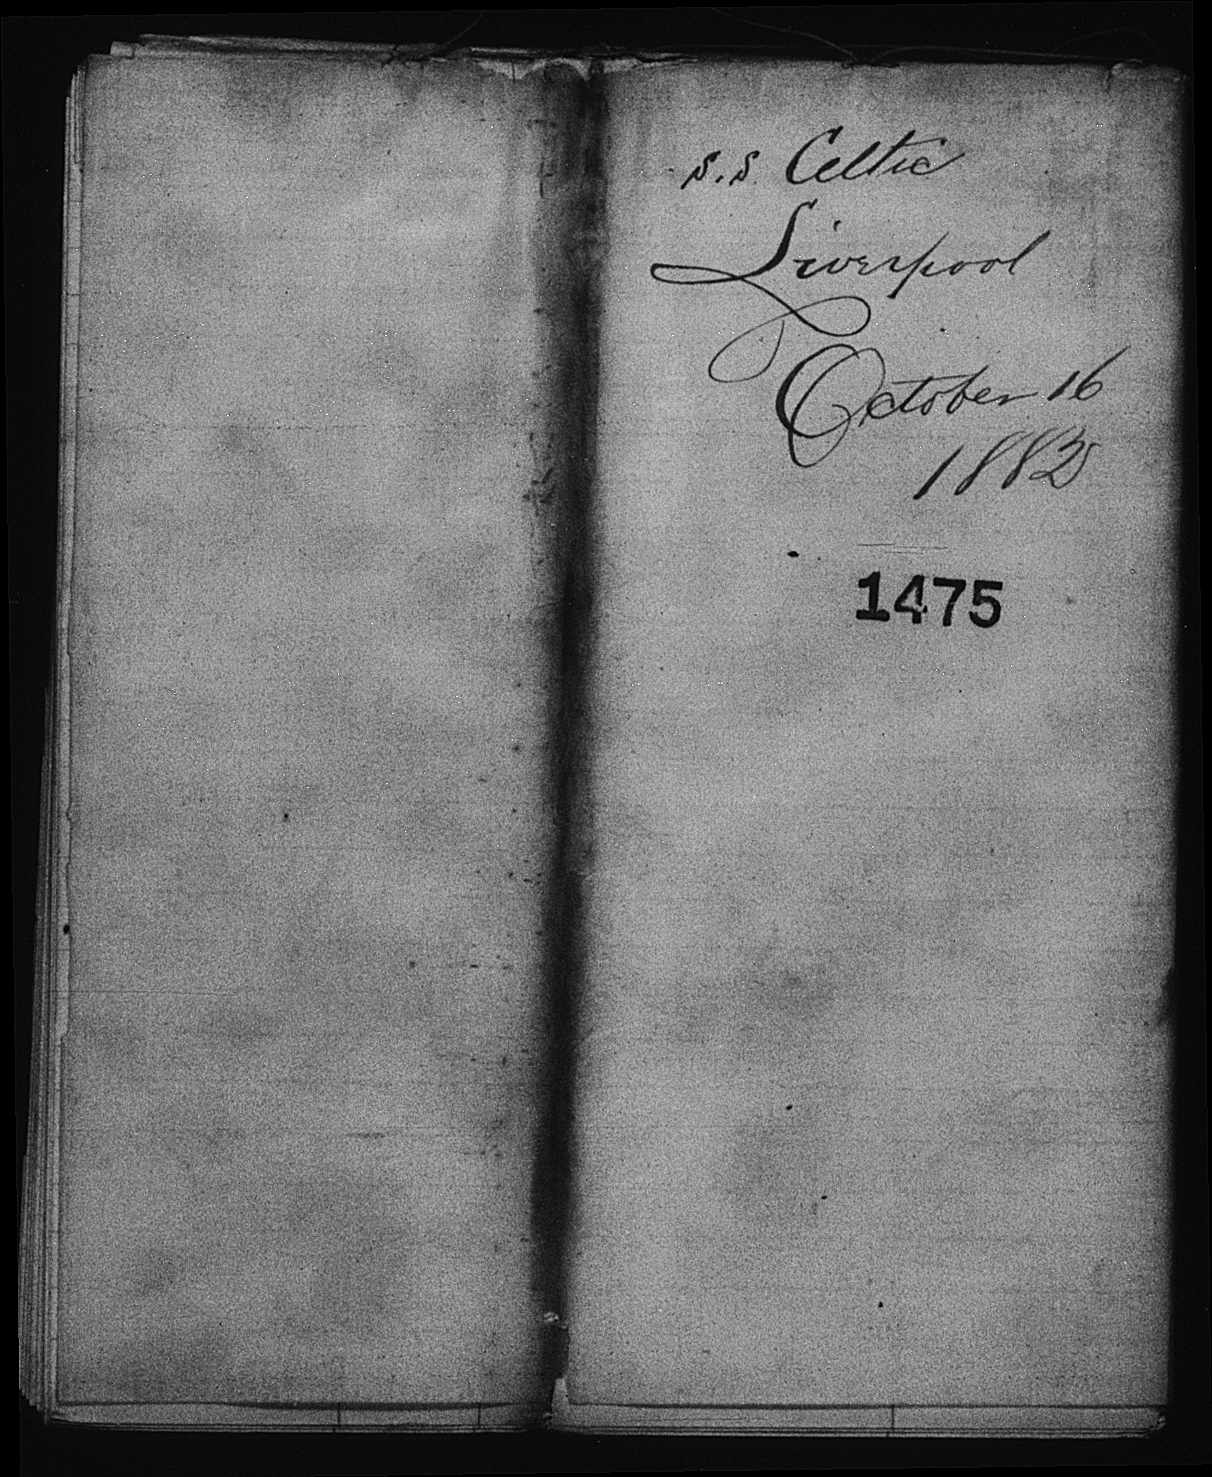 s.s. Celtic
Liverpool
October 16
1882
1475